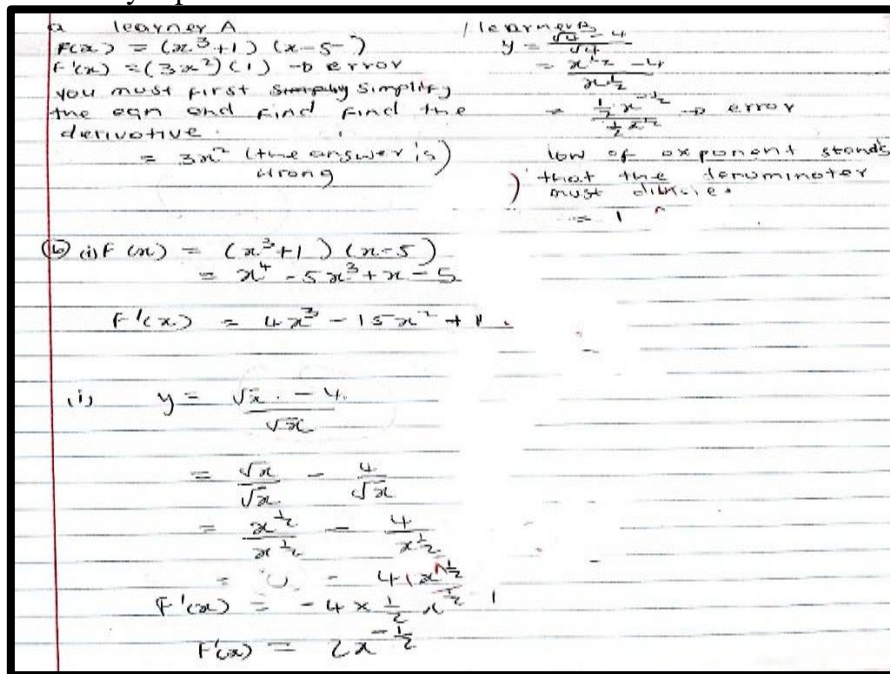 a learner A
F(x) = (x³+1) (x-5)
F'(x) = (3x²)(1) → error
you must first simplify
the eqn and find find the
derivative.
= 3x² (the answer is
wrong)
learner B
y = √4 - 4 / √4
= x^½ - 4 / x^½
= ½ x^-½ / ½ x^½ → error
low of exponent stands
that the denuminater
must
= 1
(b) (i) F (x) = (x³+1) (x-5)
= x⁴ - 5x³ + x - 5
F'(x) = 4x³ - 15x² + 1.
(i) y = √x - 4 / √x
= √x / √x - 4 / √x
= x^½ / x^½ - 4 / x^½
= 0 - 4(x^½
F'(x) = -4 x ½ x^½ 1
F'(x) = 2x^-½